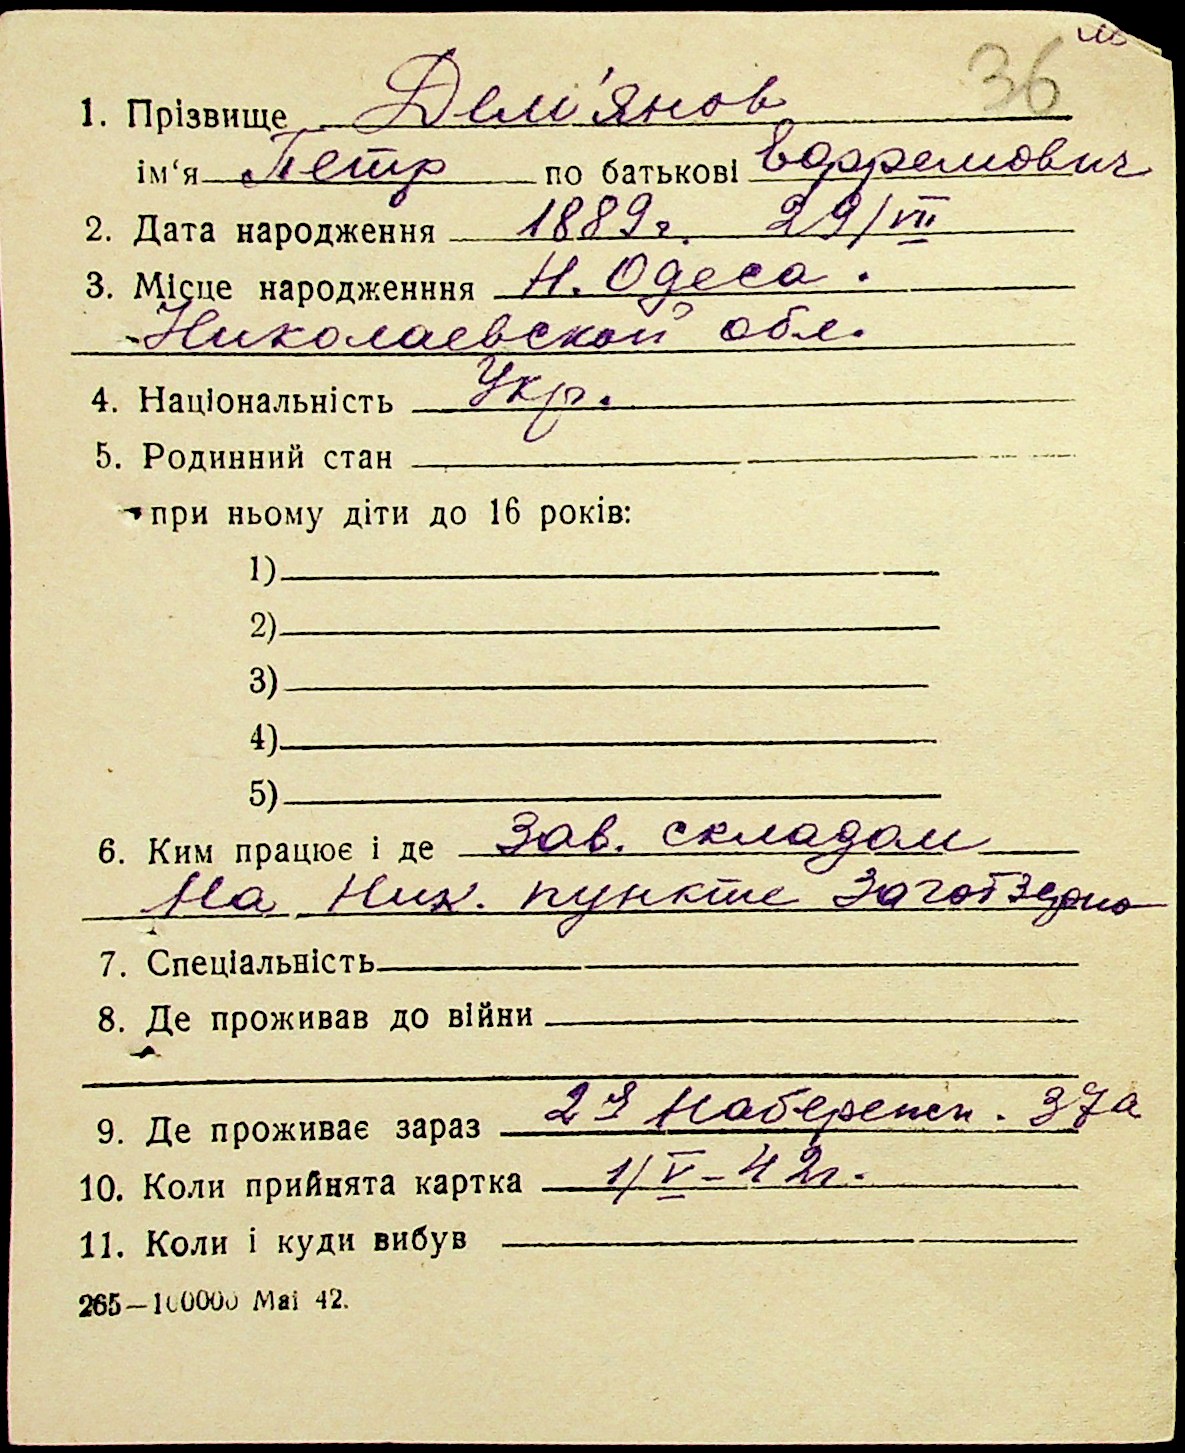 36
1. Прізвище Дем'янов
ім‘я Петр по батькові Ефремович
2. Дата народження 1889г. 29/VII
3. Місце народженння Н. Одеса.
Николаевской обл.
4. Національність Укр.
5. Родинний стан
при ньому діти до 16 років:
1)
2)
3)
4)
5)
6. Ким працює і де Зав. складом
На Ник. пункте Заготзерно
7. Спеціальність
8. Де проживав до війни
9. Де проживає зараз 2я Набережн. 37а
10. Коли прийнята картка 1/V-42г.
11. Коли і куди вибув
265—100000 Маі 42.